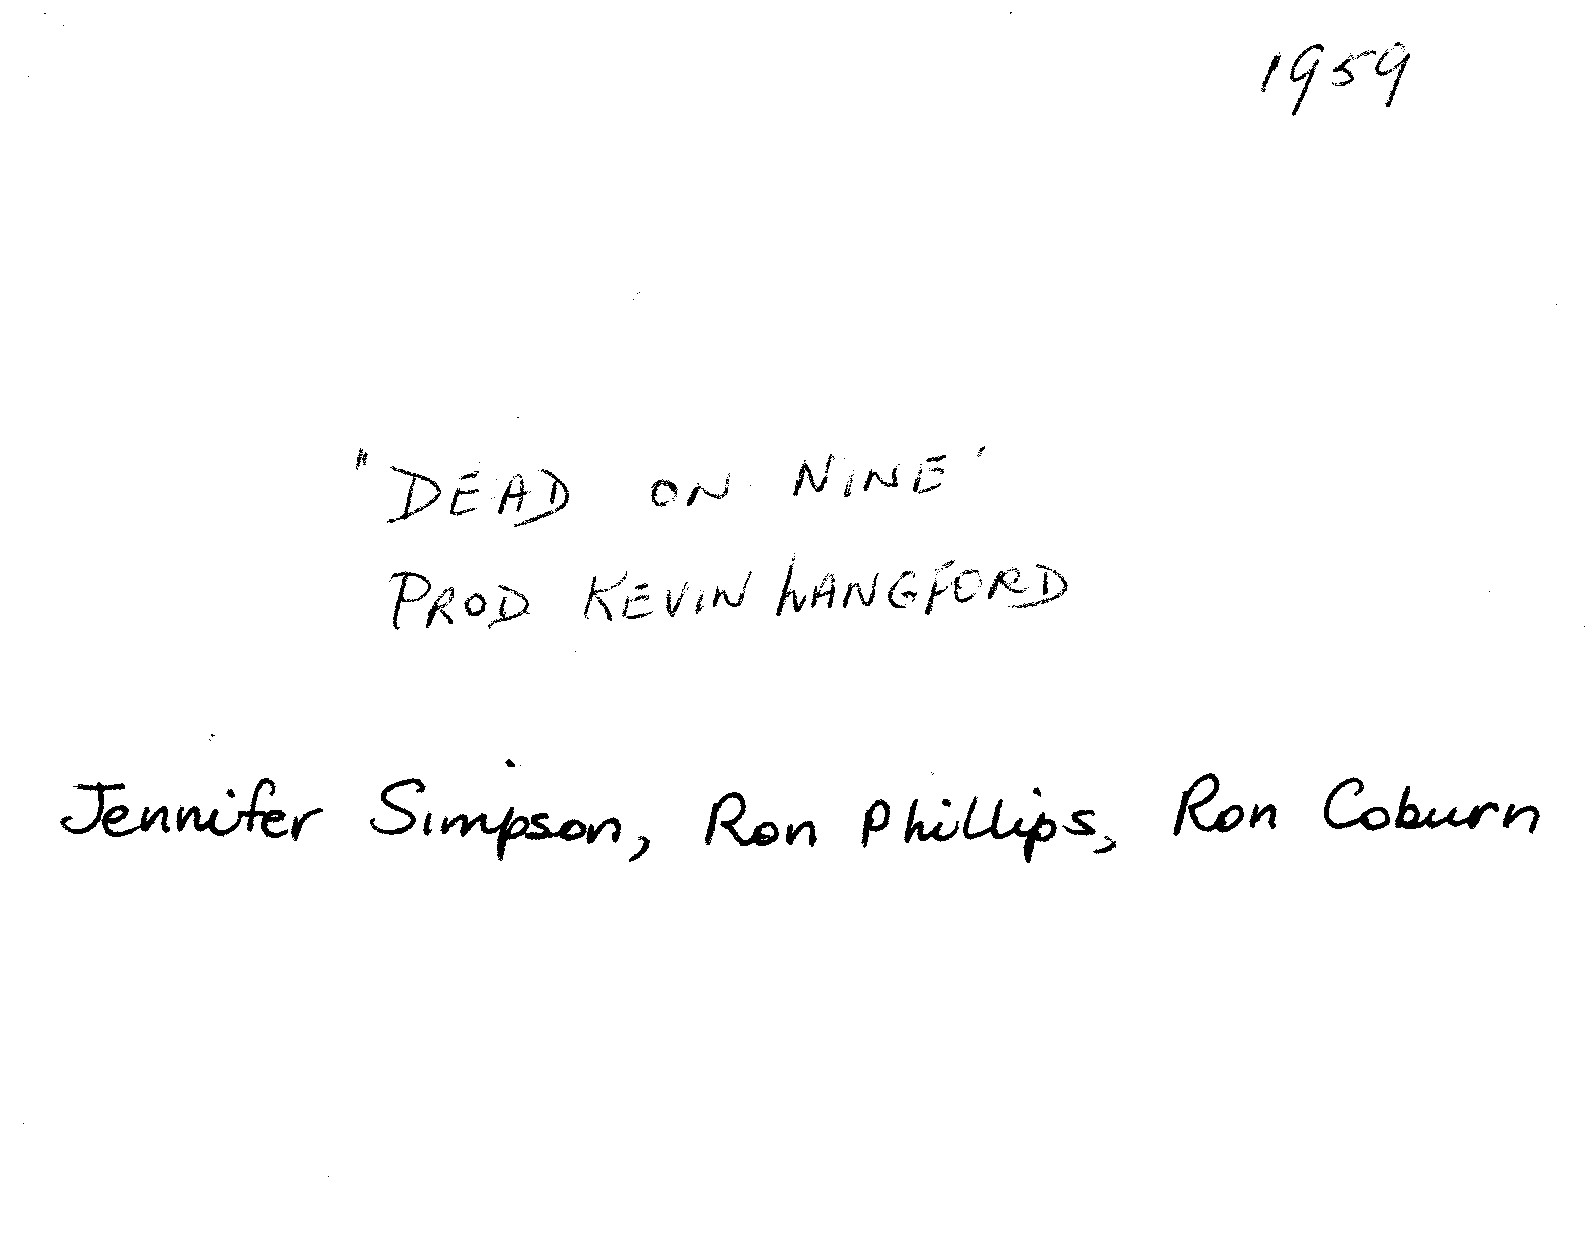 1959
"DEAD ON NINE'
PROD KEVIN LANGFORD
Jennifer Simpson, Ron Phillips, Ron Coburn